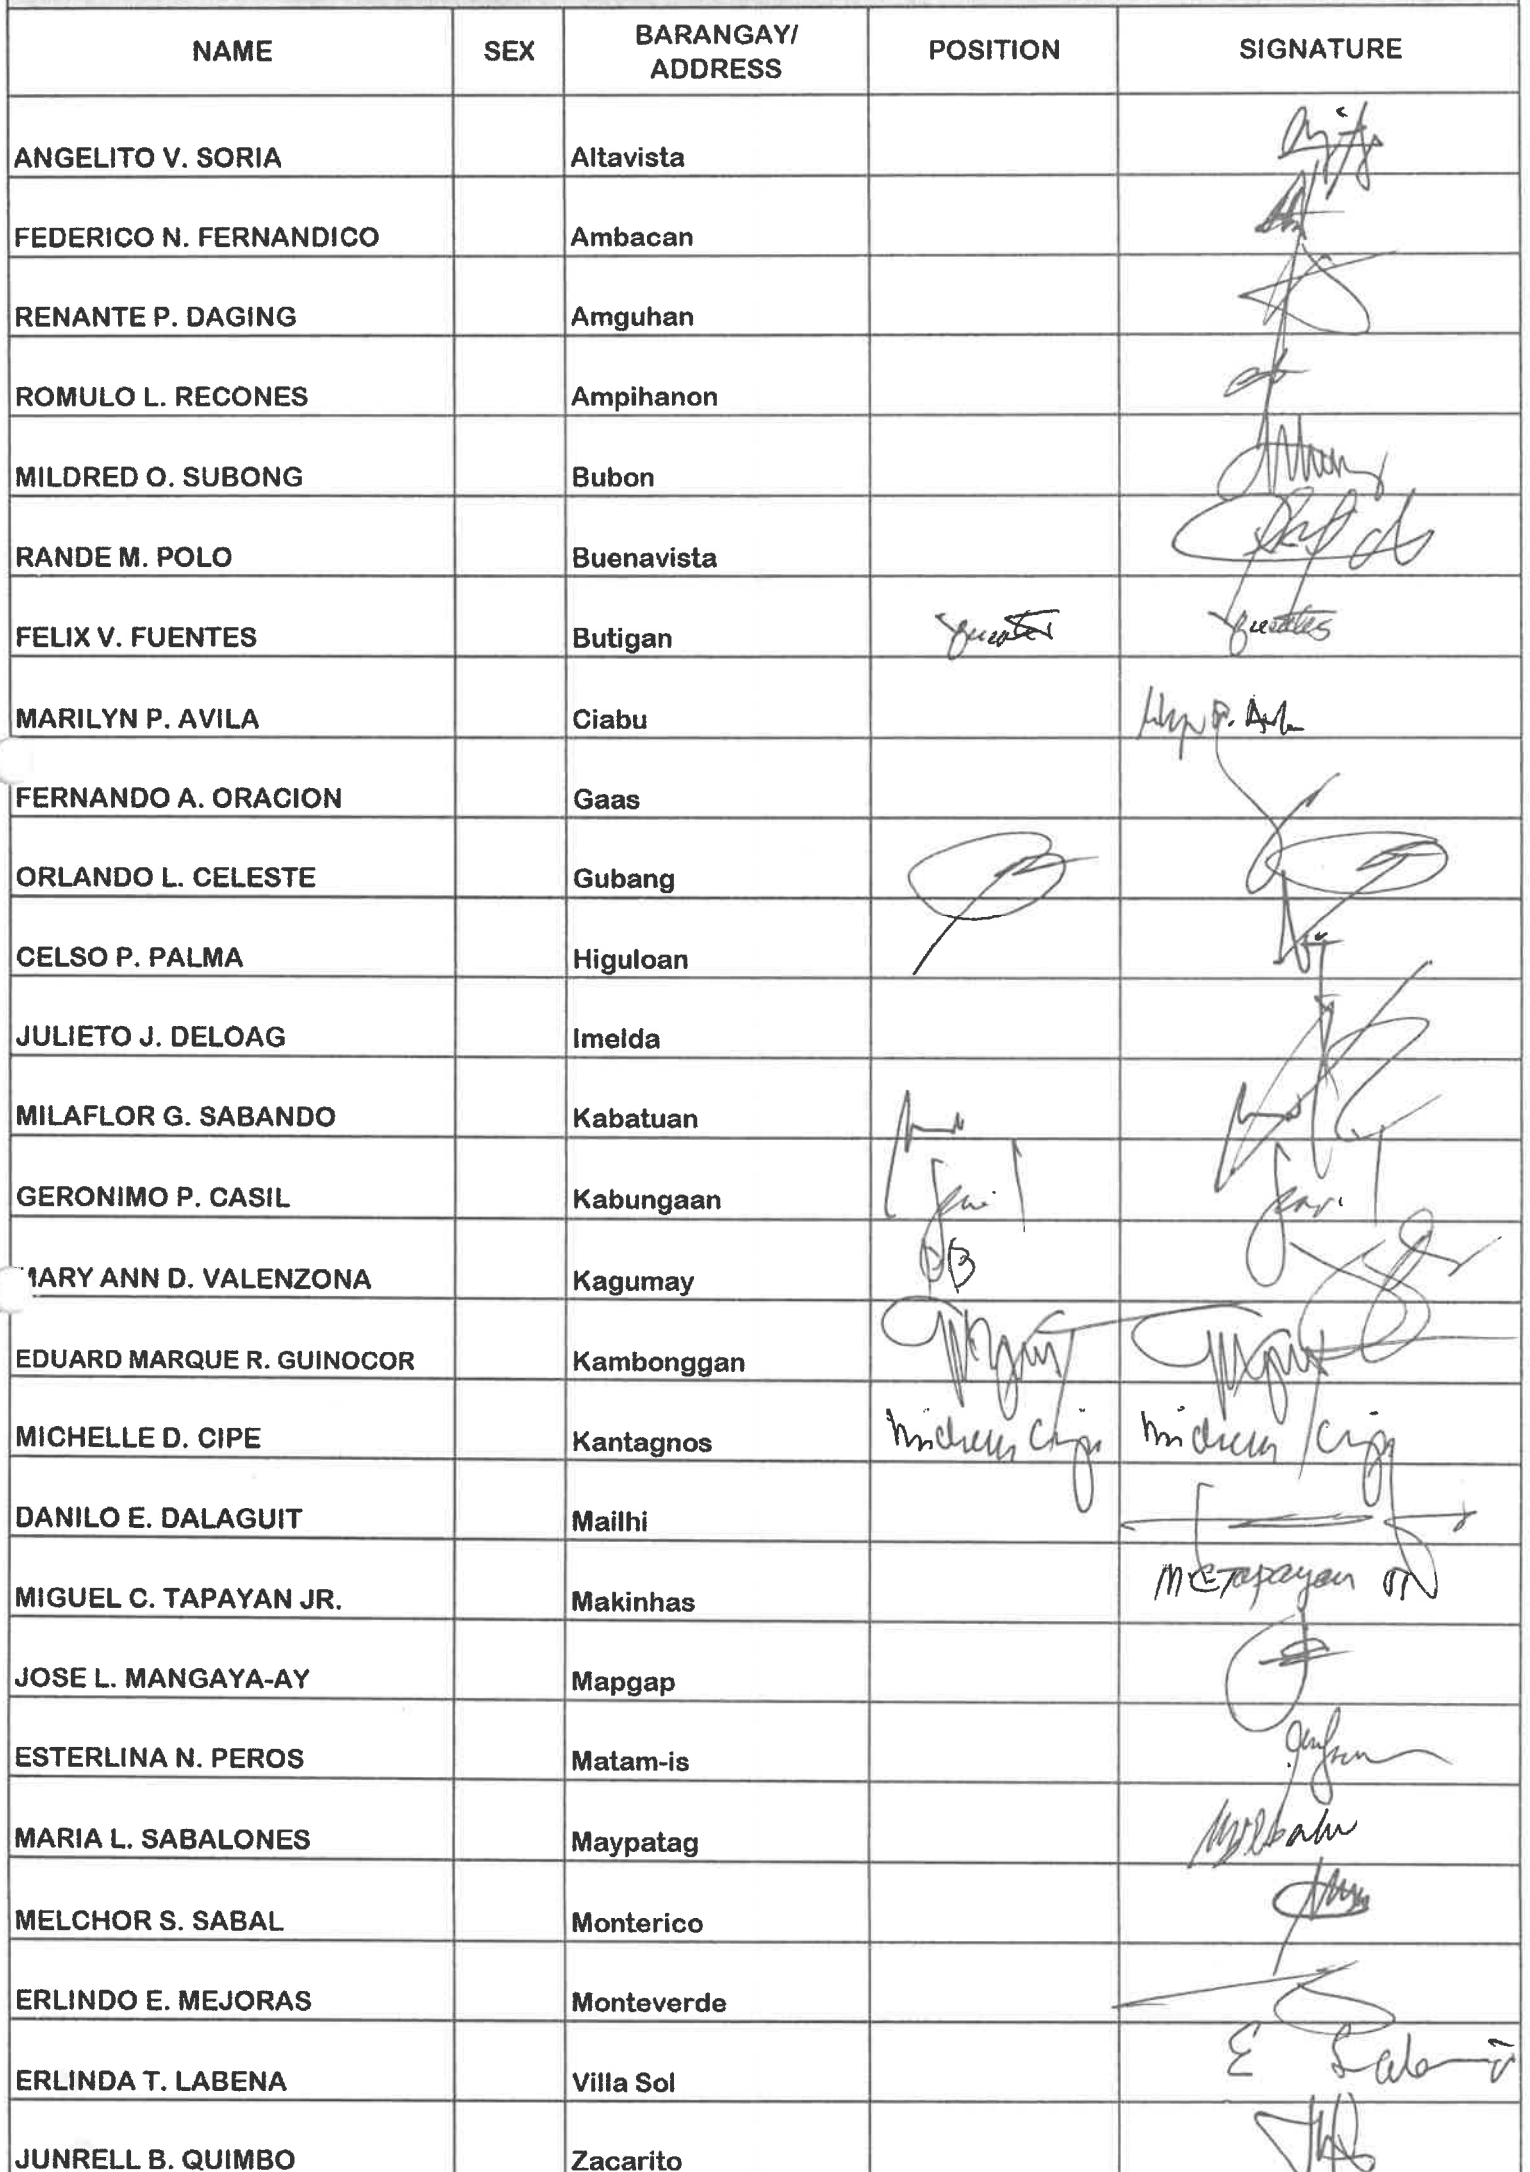 NAME SEX BARANGAY/ POSITION SIGNATURE
ADDRESS
ANGELITO V. SORIA Altavista
FEDERICO N. FERNANDICO Ambacan
RENANTE P. DAGING Amguhan
ROMULO L. RECONES Ampihanon
MILDRED O. SUBONG Bubon
RANDE M. POLO Buenavista
FELIX V. FUENTES Butigan
MARILYN P. AVILA Ciabu
FERNANDO A. ORACION Gaas
ORLANDO L. CELESTE Gubang
CELSO P. PALMA Higuloan
JULIETO J. DELOAG Imelda
MILAFLOR G. SABANDO Kabatuan
GERONIMO P. CASIL Kabungaan
MARY ANN D. VALENZONA Kagumay
EDUARD MARQUE R. GUINOCOR Kambonggan
MICHELLE D. CIPE Kantagnos
DANILO E. DALAGUIT Mailhi
MIGUEL C. TAPAYAN JR. Makinhas MCTapayan
JOSE L. MANGAYA-AY Mapgap
ESTERLINA N. PEROS Matam-is
MARIA L. SABALONES Maypatag
MELCHOR S. SABAL Monterico
ERLINDO E. MEJORAS Monteverde
ERLINDA T. LABENA Villa Sol
JUNRELL B. QUIMBO Zacarito